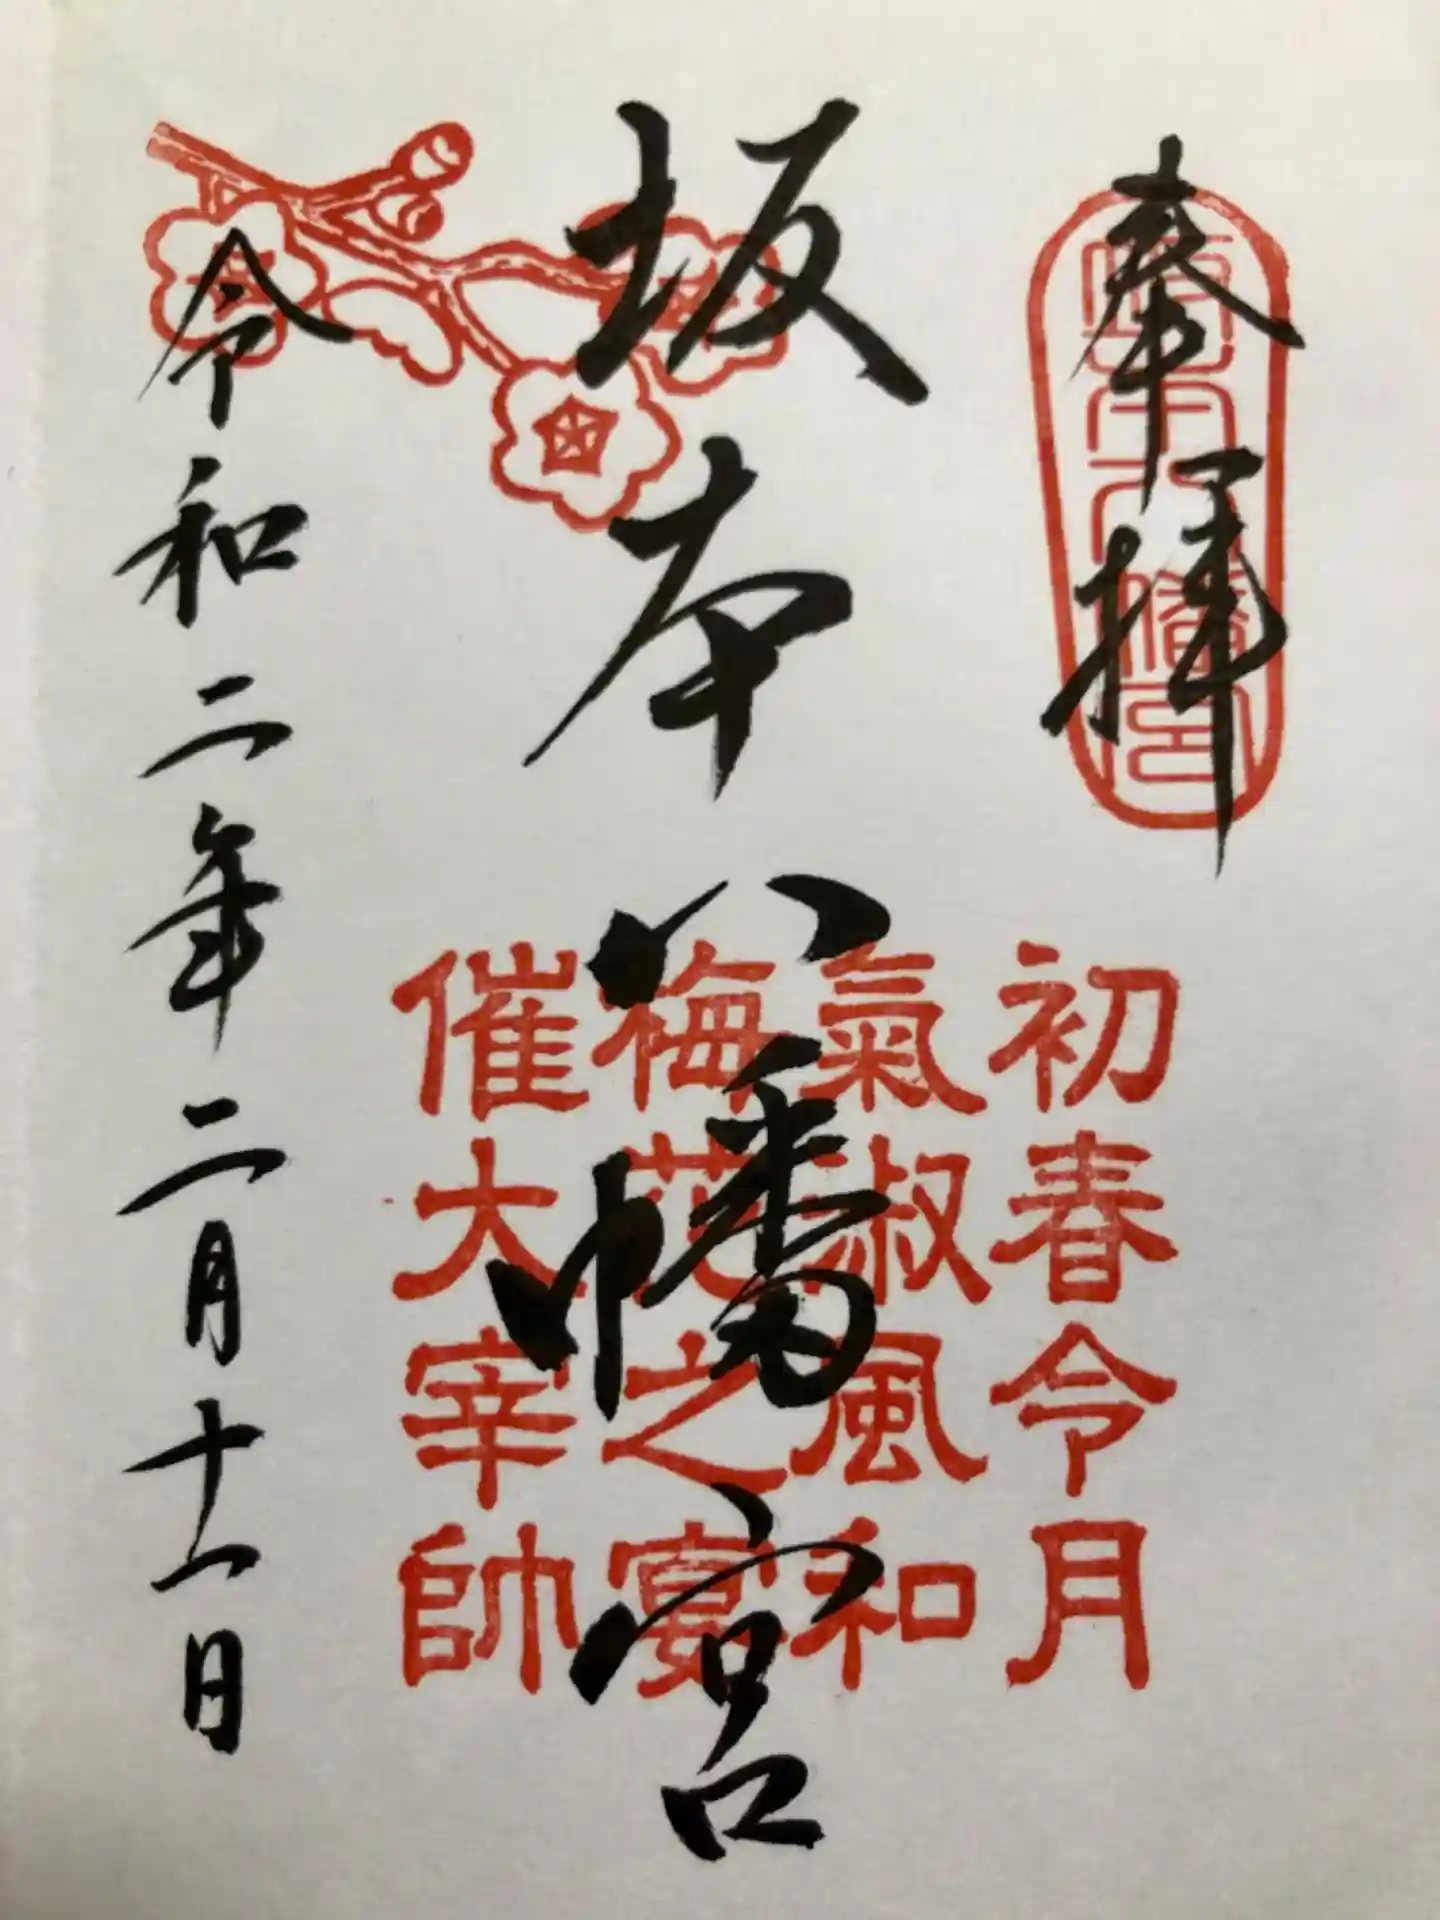 奉拝
坂本八幡宮
初春令月
氣淑風和
梅花之宴
催大宰帥
令和二年二月十一日